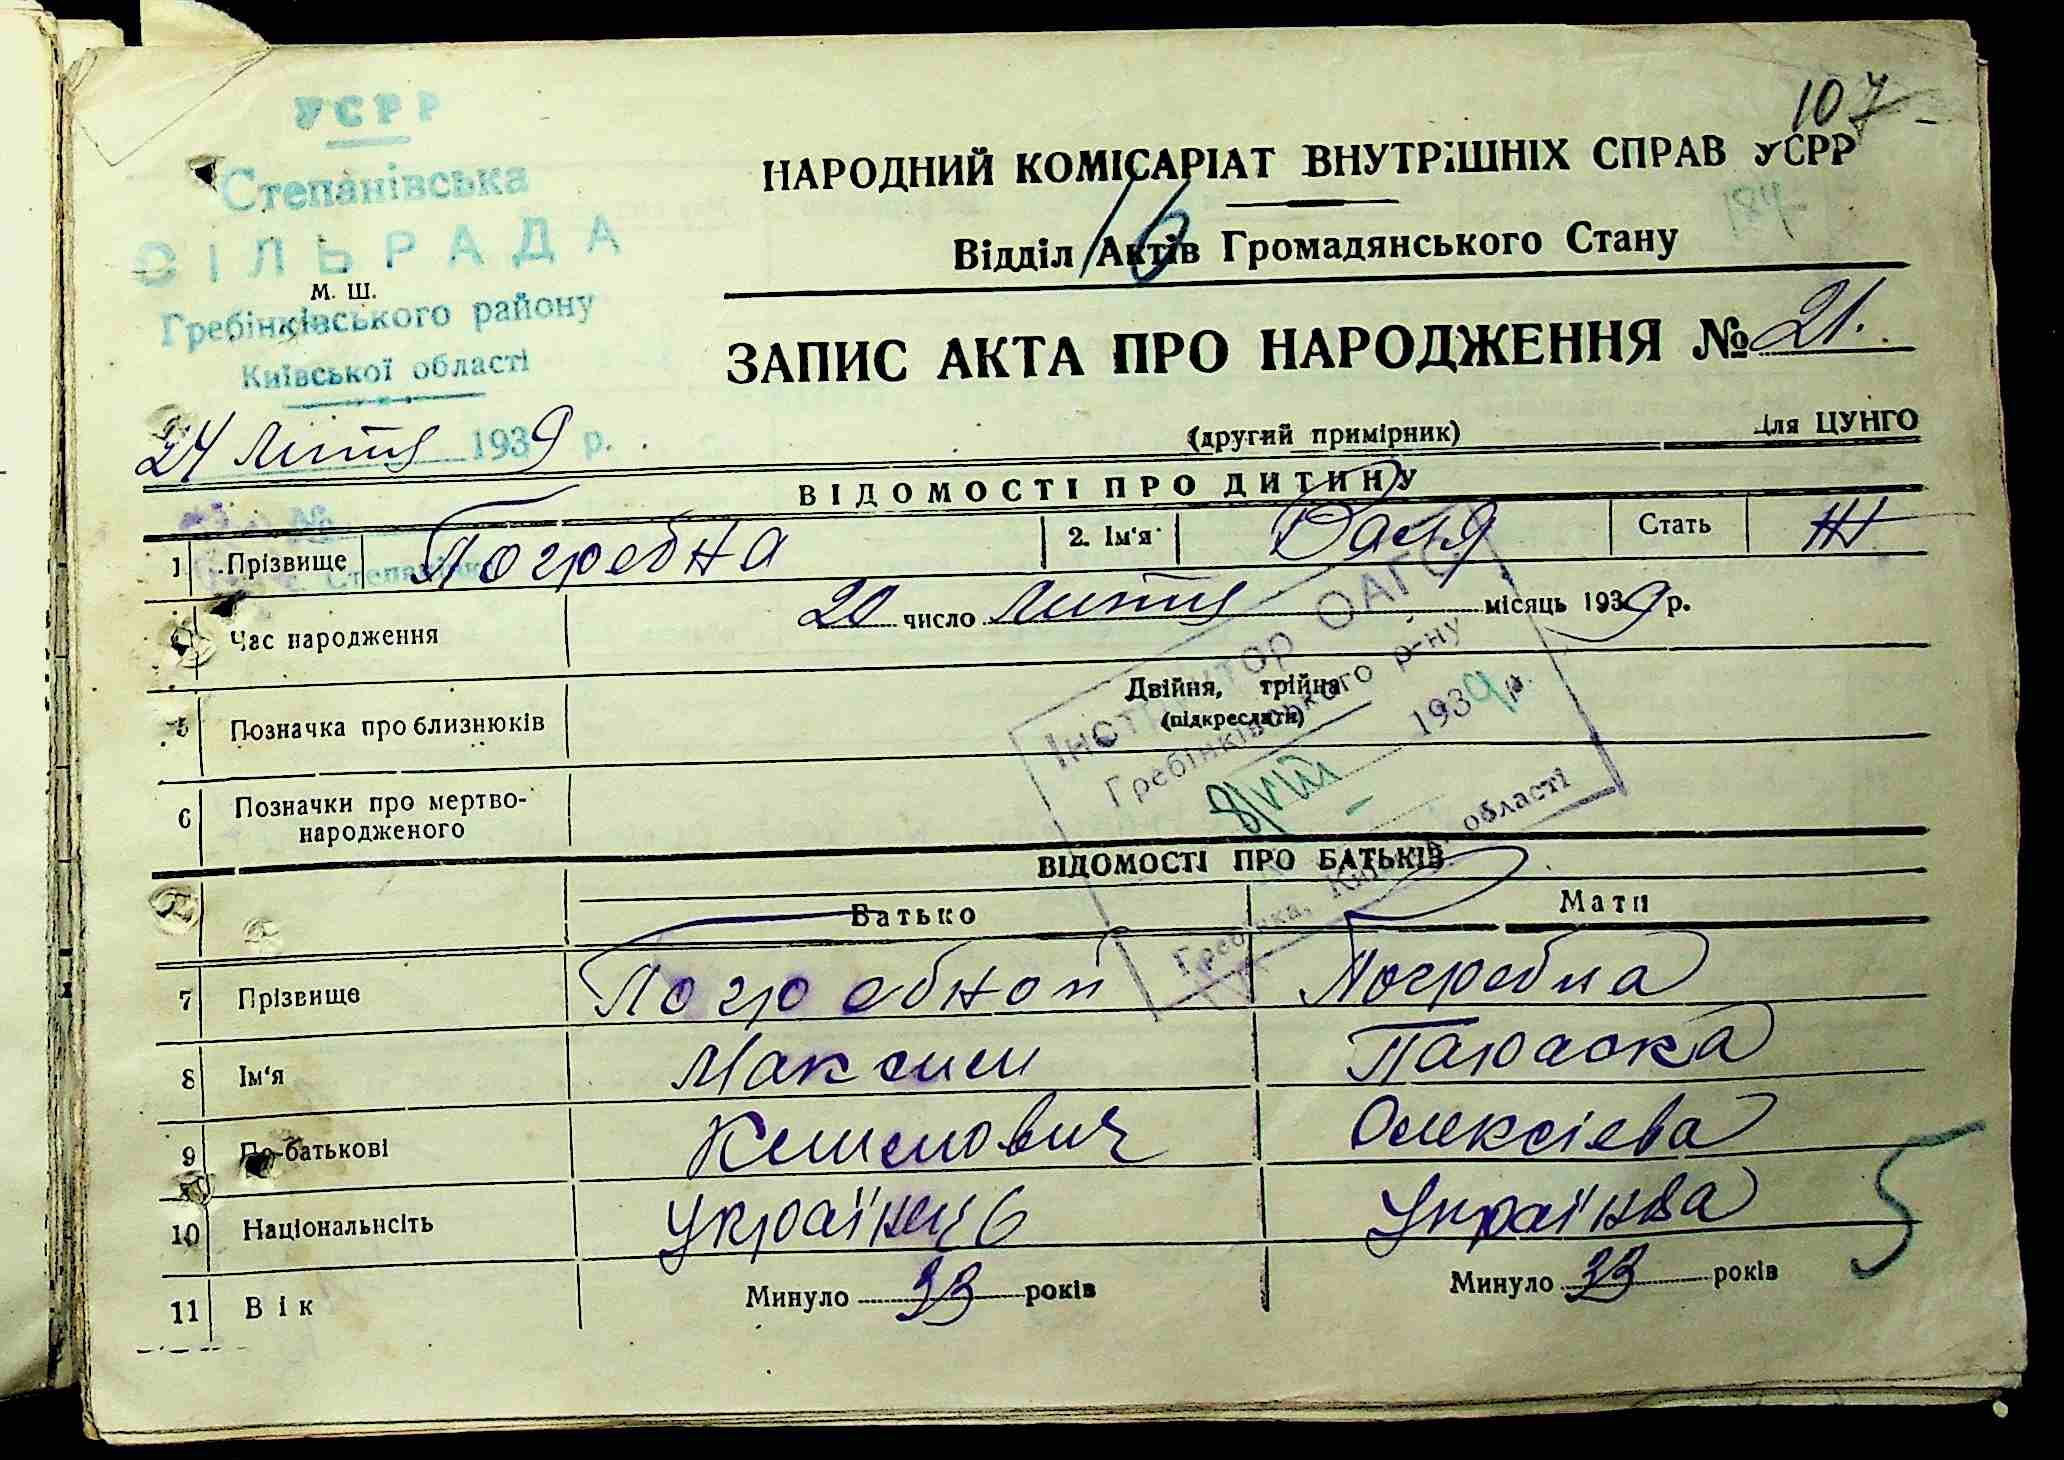 107
УСРР
Степанівська
СІЛЬРАДА
М. Ш.
Гребінківського району
Київської області
24 Лютня 1939 р.
НАРОДНИЙ КОМІСАРІАТ ВНУТРІШНІХ СПРАВ УСРР
184
16
Відділ Актів Громадянського Стану
ЗАПИС АКТА ПРО НАРОДЖЕННЯ № 21.
(другий примірник) Для ЦУНГО
ВІДОМОСТІ ПРО ДИТИНУ
1 Прізвище Погребна 2. Ім'я Валя Стать Ж
Час народження 20 число Лютня місяць 1939 р.
5 Позначка про близнюків Двійня, трійна
(підкреслати)
6 Позначки про мертво-
народженого
Інструктор ОАГС
Гребінківського р-ну
8/VIII 1939 р.
Гребінка, Київ. області
ВІДОМОСТІ ПРО БАТЬКІВ
Батько Мати
7 Прізвище Погребной Погребна
8 Ім'я Максим Параска
9 По-батькові Климович Олексієва
10 Національність Українець Українка
11 Вік Минуло 33 років Минуло 33 років
5